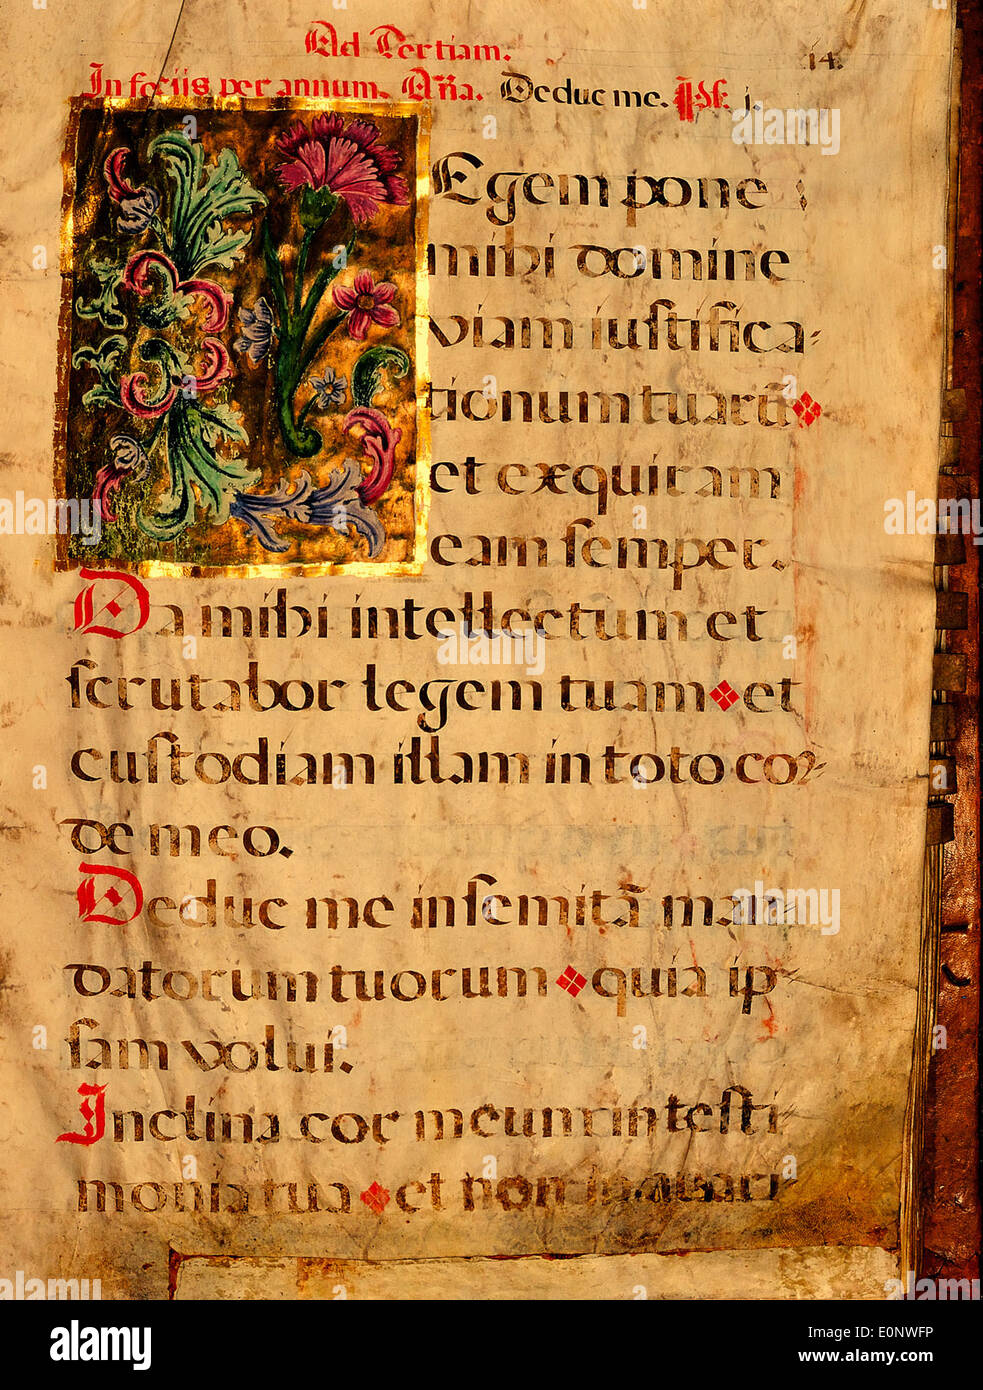 Ad Tertiam.
14.
In feriis per annum. Aña. Deduc me. Ps. j.
LEgem pone
mihi domine
viam iuſtifica-
tionum tuarū
et exquiram
eam ſemper.
Da mihi intellectum et
ſcrutabor legem tuam et
cuſtodiam illam in toto cor-
de meo.
Deduc me in ſemitā man-
datorum tuorum quia ip-
ſam volui.
Inclina cor meum in teſti
monia tua et non in avari
a alamy stock photo
alamy
Image ID: E0NWFP
www.alamy.com